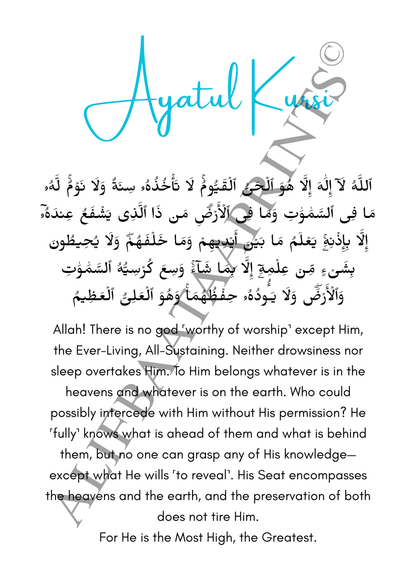 Ayatul Kursi
ٱللَّهُ لَآ إِلَٰهَ إِلَّا هُوَ ٱلْحَىُّ ٱلْقَيُّومُ ۚ لَا تَأْخُذُهُۥ سِنَةٌ وَلَا نَوْمٌ ۚ لَّهُۥ
مَا فِى ٱلسَّمَٰوَٰتِ وَمَا فِى ٱلْأَرْضِ ۗ مَن ذَا ٱلَّذِى يَشْفَعُ عِندَهُۥٓ
إِلَّا بِإِذْنِهِۦ ۚ يَعْلَمُ مَا بَيْنَ أَيْدِيهِمْ وَمَا خَلْفَهُمْ ۖ وَلَا يُحِيطُونَ
بِشَىْءٍ مِّنْ عِلْمِهِۦٓ إِلَّا بِمَا شَآءَ ۚ وَسِعَ كُرْسِيُّهُ ٱلسَّمَٰوَٰتِ
وَٱلْأَرْضَ ۖ وَلَا يَـُٔودُهُۥ حِفْظُهُمَا ۚ وَهُوَ ٱلْعَلِىُّ ٱلْعَظِيمُ
Allah! There is no god ˹worthy of worship˺ except Him,
the Ever-Living, All-Sustaining. Neither drowsiness nor
sleep overtakes Him. To Him belongs whatever is in the
heavens and whatever is on the earth. Who could
possibly intercede with Him without His permission? He
˹fully˺ knows what is ahead of them and what is behind
them, but no one can grasp any of His knowledge—
except what He wills ˹to reveal˺. His Seat encompasses
the heavens and the earth, and the preservation of both
does not tire Him.
For He is the Most High, the Greatest.
ALIFBAATAAPRINTS©